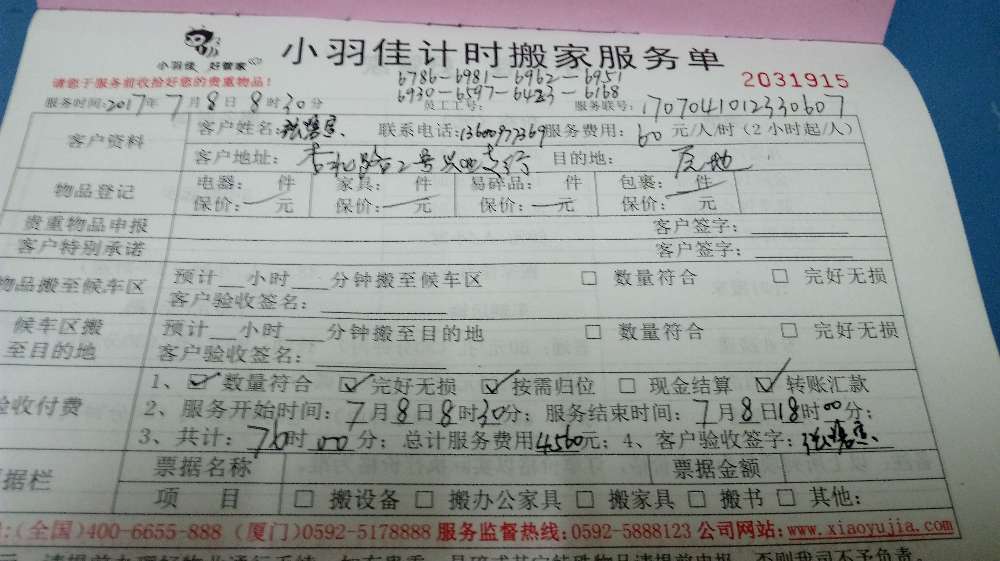 小羽佳 好管家
小羽佳计时搬家服务单
请您于服务前收拾好您的贵重物品!
6786-6981-6962-6951
2031915
6930-6597-6423-6168
服务时间:2017年7月8日8时30分 员工工号: 服务联号:1707041012330607
客户资料
客户姓名: 联系电话:13600977369 服务费用:60元/人/时(2小时起/人)
客户地址:杏北路2号兴业支行 目的地:原地
物品登记
电器: 件 家具: 件 易碎品: 件 包裹: 件
保价: 元 保价: 元 保价: 元 保价: 元
贵重物品申报 客户签字:
客户特别承诺 客户签字:
物品搬至候车区
预计__小时___分钟搬至候车区 □ 数量符合 □ 完好无损
客户验收签名:
候车区搬至目的地
预计__小时___分钟搬至目的地 □ 数量符合 □ 完好无损
客户验收签名:
验收付费
1、☑数量符合 ☑完好无损 ☑按需归位 □现金结算 ☑转账汇款
2、服务开始时间:7月8日8时30分;服务结束时间:7月8日18时00分;
3、共计:76时00分;总计服务费用4560元;4、客户验收签字:
票据栏
票据名称 票据金额
项 目 □ 搬设备 □ 搬办公家具 □ 搬家具 □ 搬书 □ 其他:
:(全国)400-6655-888 (厦门)0592-5178888 服务监督热线:0592-5888123 公司网站:www.xiaoyujia.com